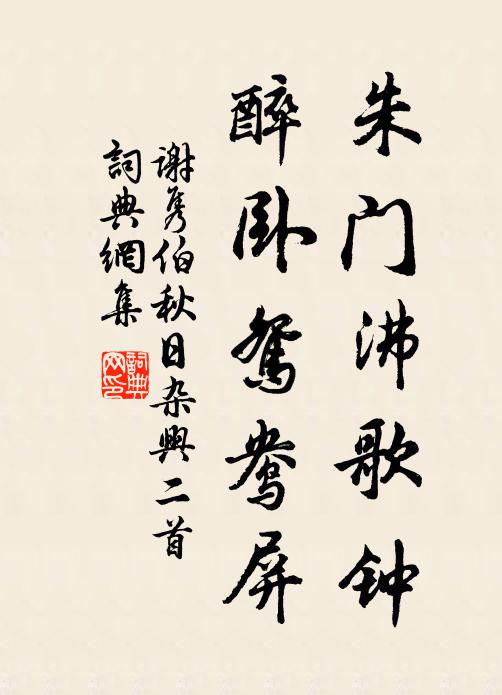 朱门沸歌钟
醉卧鸳鸯屏
谢隽伯秋日杂興二首
詞典網集
詞典网印